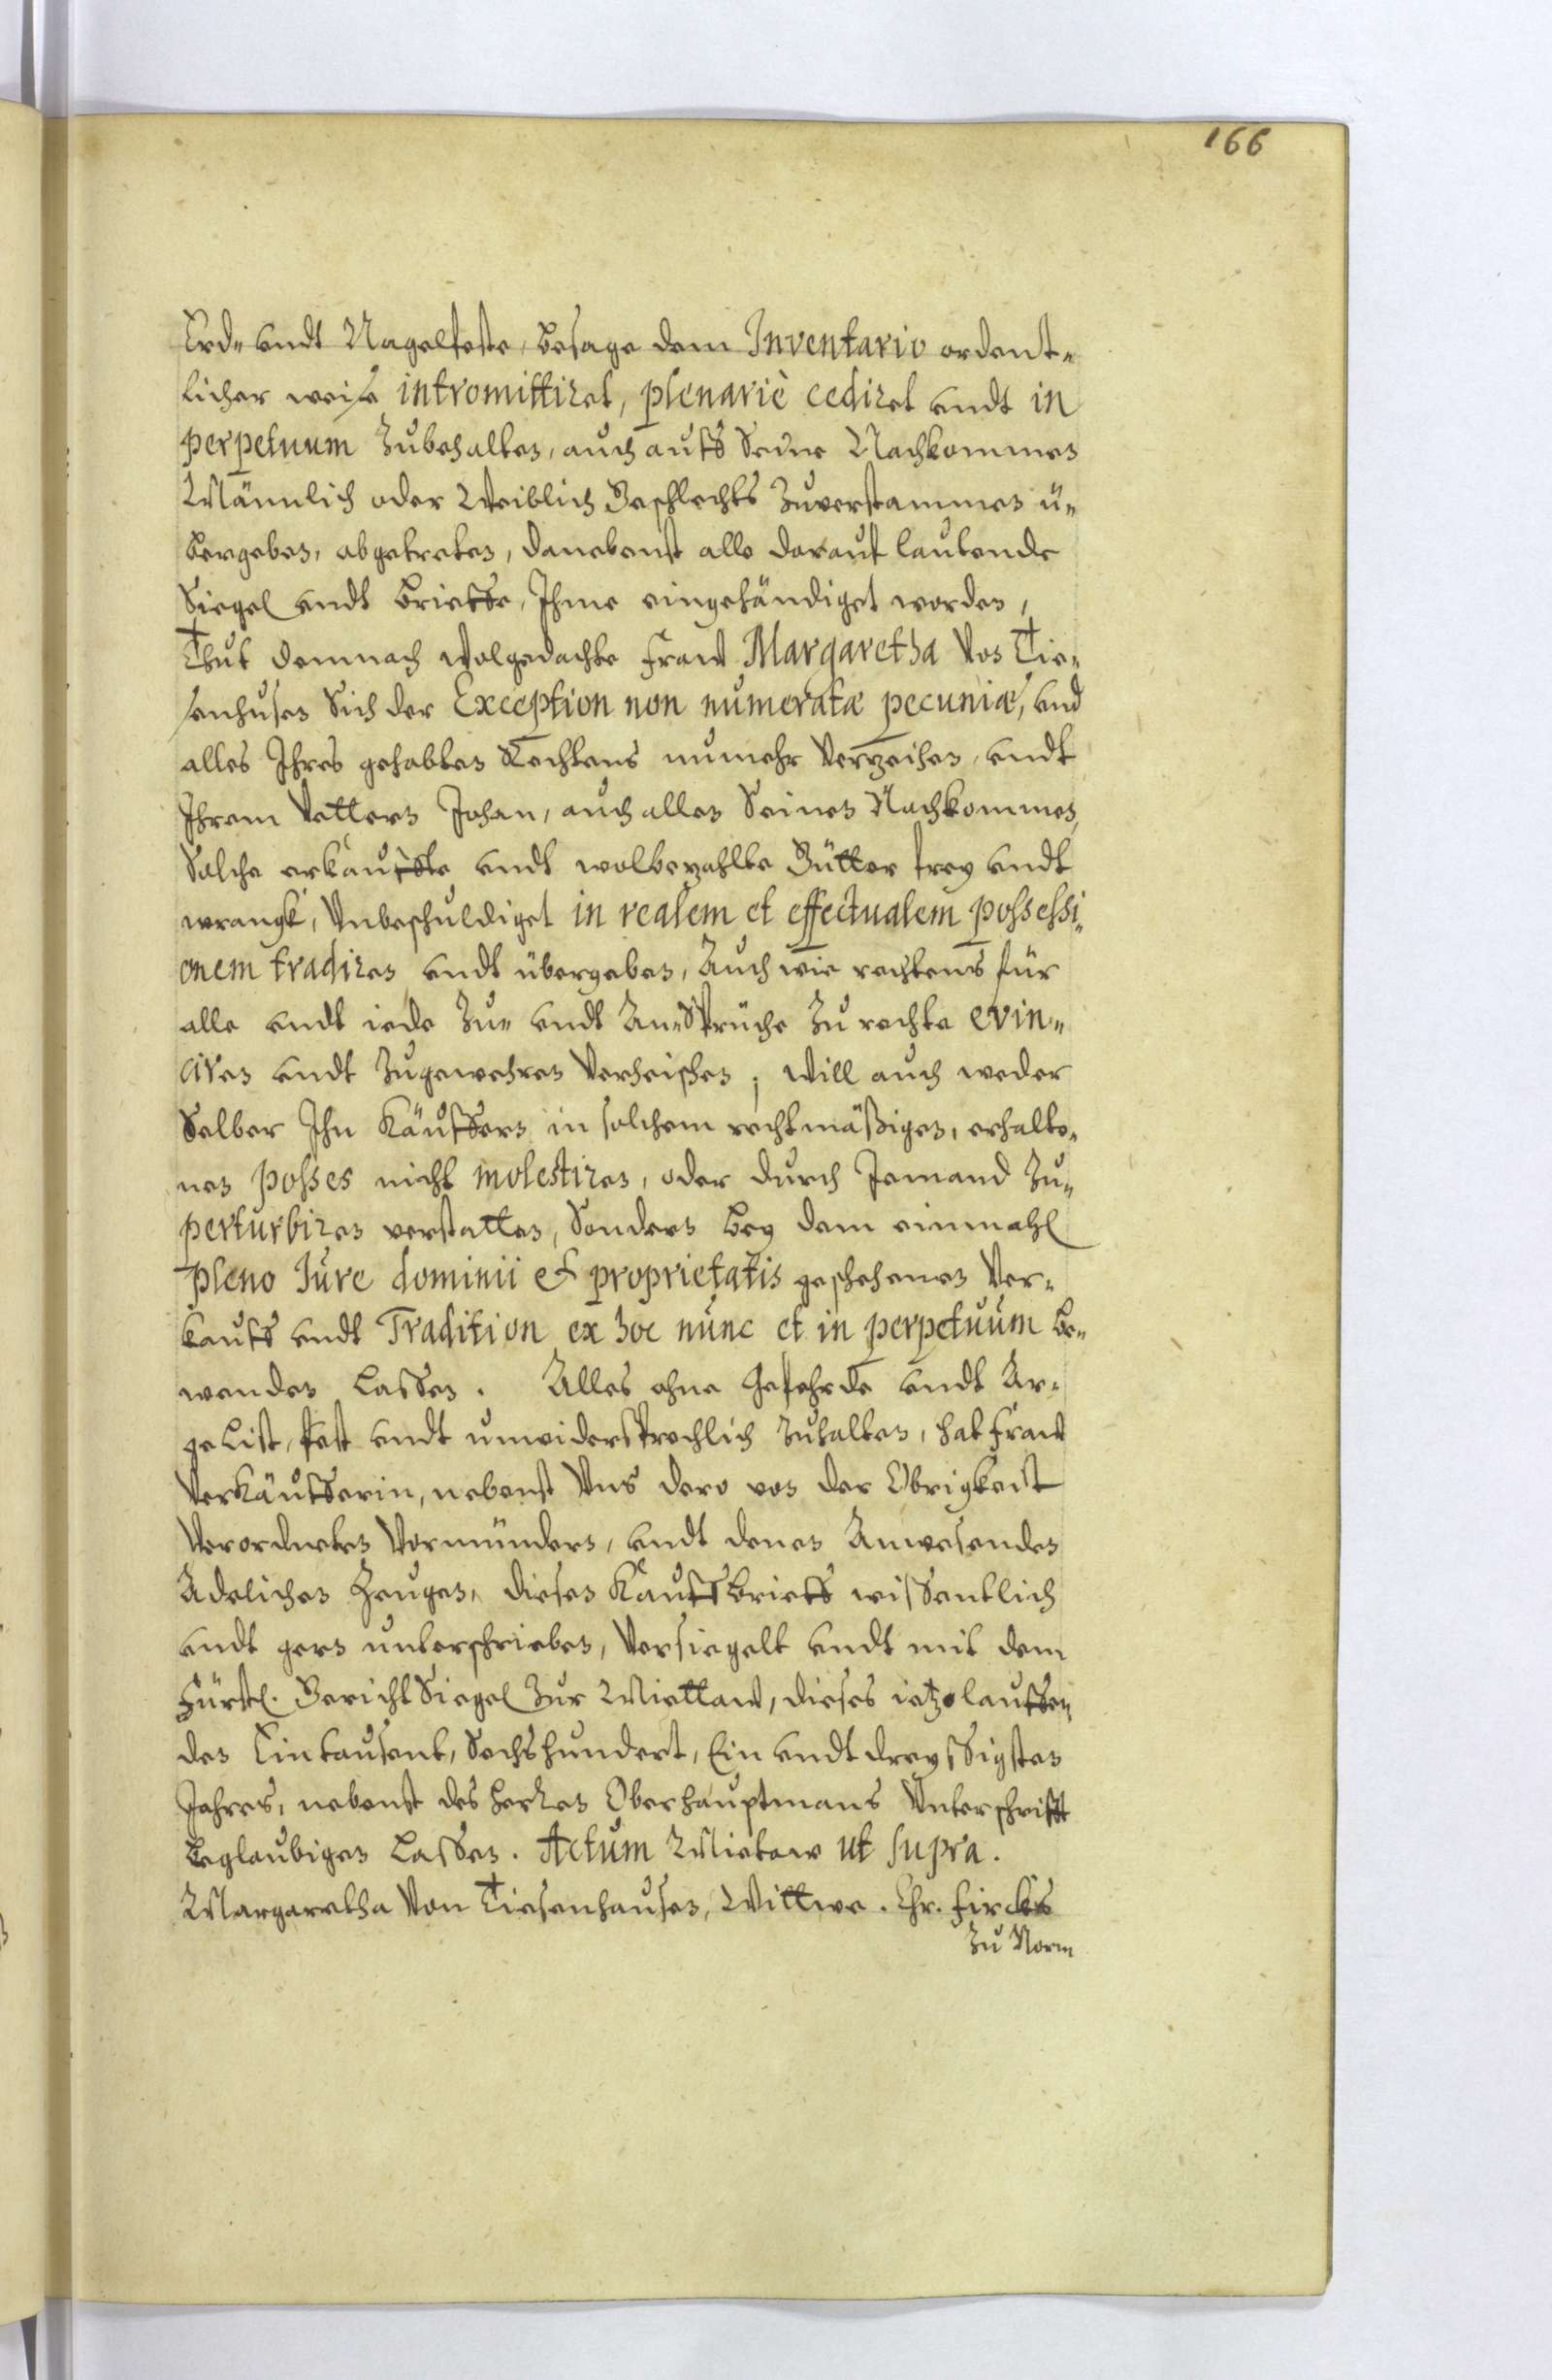 166
Erd- undt Nagelfeste, besage dem Inventario ordent-
licher weise intromittiret, plenariè cediret undt in
perpetuum Zubehalten, auch auff Seine Nachkommen
Männlich oder Weiblich Geschlechts Zuverstammen ü-
bergeben, abgetreten, danebenst alle darauf lautende
Siegel undt brieffe, Ihme eingehändiget worden,
Thut demnach Wolgedachte Fraw Margaretha Von Tie-
senhusen Sich der Exception non numeratæ pecuniæ, und
alles Ihres gehabten Rechtens numehr Verzeihen, undt
Ihrem Vettern Johan, auch allen Seinen Nachkommen,
Solche erkauffte undt wolbezahlte Gütter frey undt
wrangk, Unbeschuldiget in realem et effectualem possessi-
onem tradiren undt übergeben, Auch wie rechtens für
alle undt iede Zu- undt An-Sprüche Zu rechte evin-
ciren undt Zugewehren Verheischen; Will auch weder
Selber Ihn Käuffern in solchem rechtmäßigen, erhalte-
nen Posses nicht molestiren, oder durch Jemand Zu-
perturbiren verstatten, Sondern bey dem einmahl
pleno Jure dominii et proprietatis geschehenen Ver-
kauff undt Tradition ex hoc nunc et in perpetuum be-
wenden lassen. Alles ohne Gefehrde undt Ar-
gelist, fest undt unwidersprechlich Zuhalten, hat Fraw
Verkäufferin, nebenst Uns dero von der Obrigkeit
Verordneten Vormündern, undt denen Anwesenden
Adelichen Zeugen, diesen Kauffbrieff wissentlich
undt gern unterschrieben, Versiegelt undt mit dem
Fürstl. Gericht Siegel Zur Miettaw, dieses ietzolauffen-
den Eintausent, Sechshundert, Ein undt dreyssigsten
Jahres, nebenst des Herren Oberhauptmans Unterschrifft
beglaubigen lassen. Actum Mietaw ut supra.
Margaretha Von Tiesenhausen, Wittwe. Chr. Fircks
Zu Norm